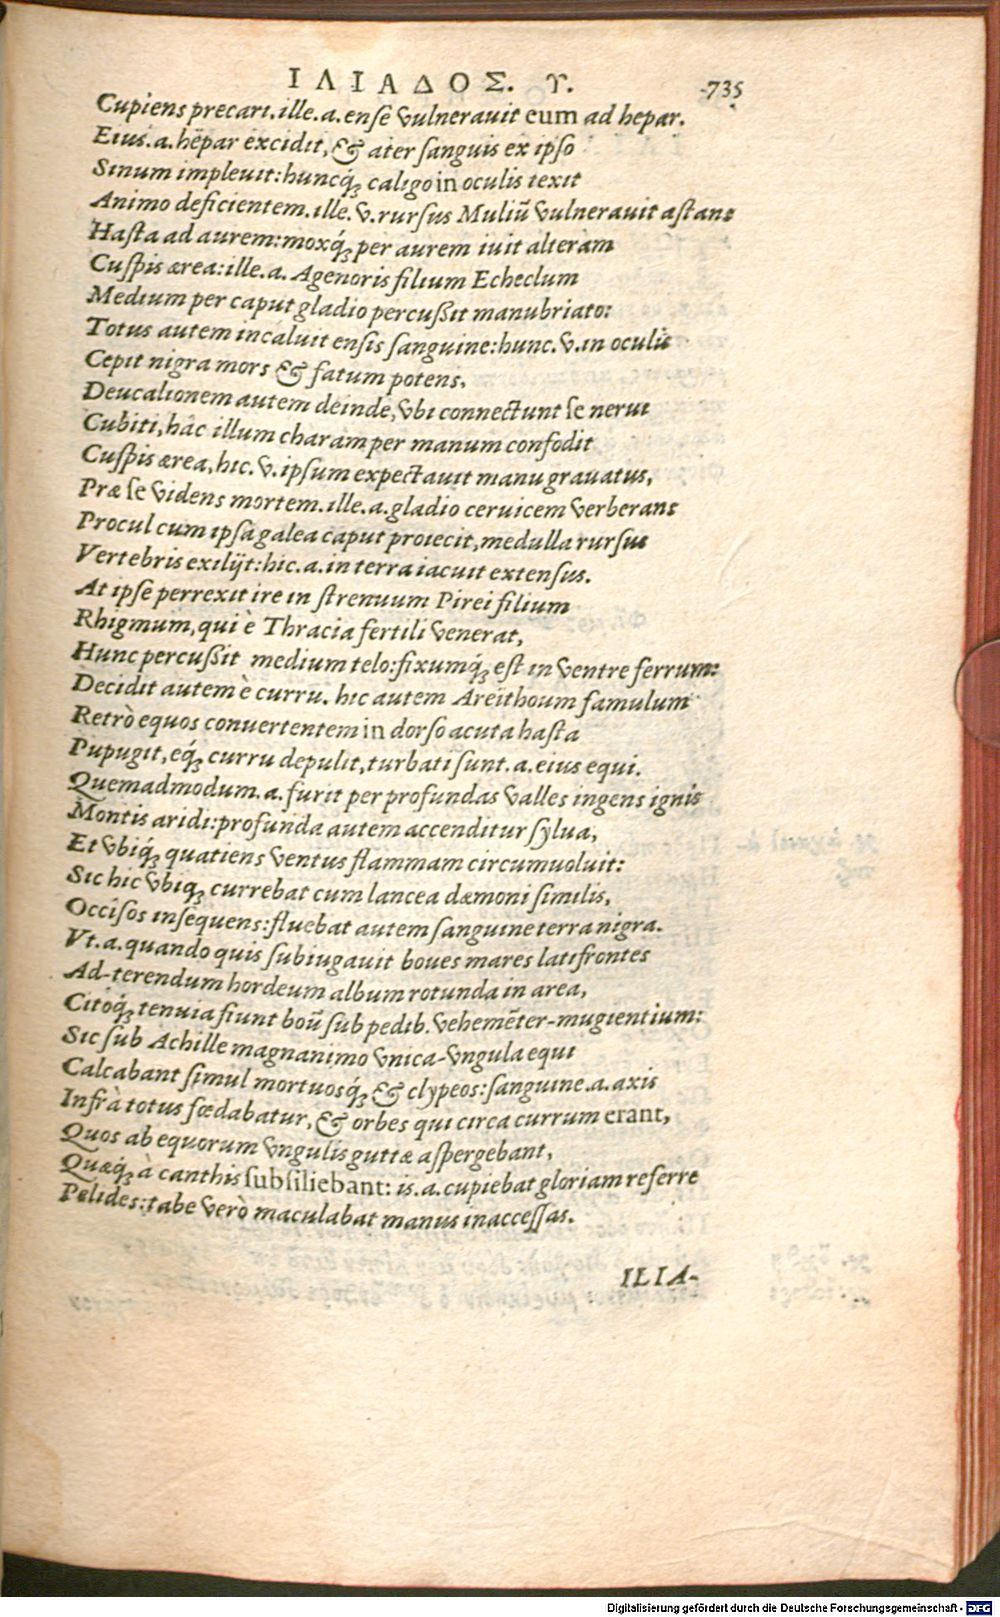 ΙΛΙΑΔΟΣ. Υ. 735
Cupiens precari.ille.a.ense vulnerauit eum ad hepar.
Eius.a.hepar excidit,& ater sanguis ex ipso
Sinum impleuit:huncq́; caligo in oculis texit
Animo deficientem.ille.v.rursus Muliũ vulnerauit astans
Hasta ad aurem:moxq́; per aurem iuit alteram
Cuspis ærea:ille.a. Agenoris filium Echeclum
Medium per caput gladio percußit manubriato:
Totus autem incaluit ensis sanguine:hunc.v.in oculis
Cepit nigra mors & fatum potens.
Deucalionem autem deinde,vbi connectunt se nerui
Cubiti,hâc illum charam per manum confodit
Cuspis ærea,hic.v.ipsum expectauit manu grauatus,
Præ se videns mortem.ille.a.gladio ceruicem verberans
Procul cum ipsa galea caput proiecit,medulla rursus
Vertebris exilijt:hic.a.in terra iacuit extensus.
At ipse perrexit ire in strenuum Pirei filium
Rhigmum,qui è Thracia fertili venerat,
Hunc percußit medium telo:fixumq́; est in ventre ferrum:
Decidit autem è curru. hic autem Areithoum famulum
Retrò equos conuertentem in dorso acuta hasta
Pupugit,eq́; curru depulit,turbati sunt.a.eius equi.
Quemadmodum.a.furit per profundas valles ingens ignis
Montis aridi:profunda autem accenditur sylua,
Et vbiq́; quatiens ventus flammam circumuoluit:
Sic hic vbiq; currebat cum lancea dæmoni similis,
Occisos insequens:fluebat autem sanguine terra nigra.
Vt.a.quando quis subiugauit boues mares latifrontes
Ad-terendum hordeum album rotunda in area,
Citòq́; tenuia fiunt boũ sub pedib.vehemẽter-mugientium:
Sic sub Achille magnanimo vnica-vngula equi
Calcabant simul mortuosq́; & clypeos:sanguine.a.axis
Infrà totus fœdabatur,& orbes qui circa currum erant,
Quos ab equorum vngulis guttæ aspergebant,
Quæq́; à canthis subsiliebant: is.a.cupiebat gloriam referre
Pelides:tabe verò maculabat manus inaccessas.
ILIA-
Digitalisierung gefördert durch die Deutsche Forschungsgemeinschaft - DFG